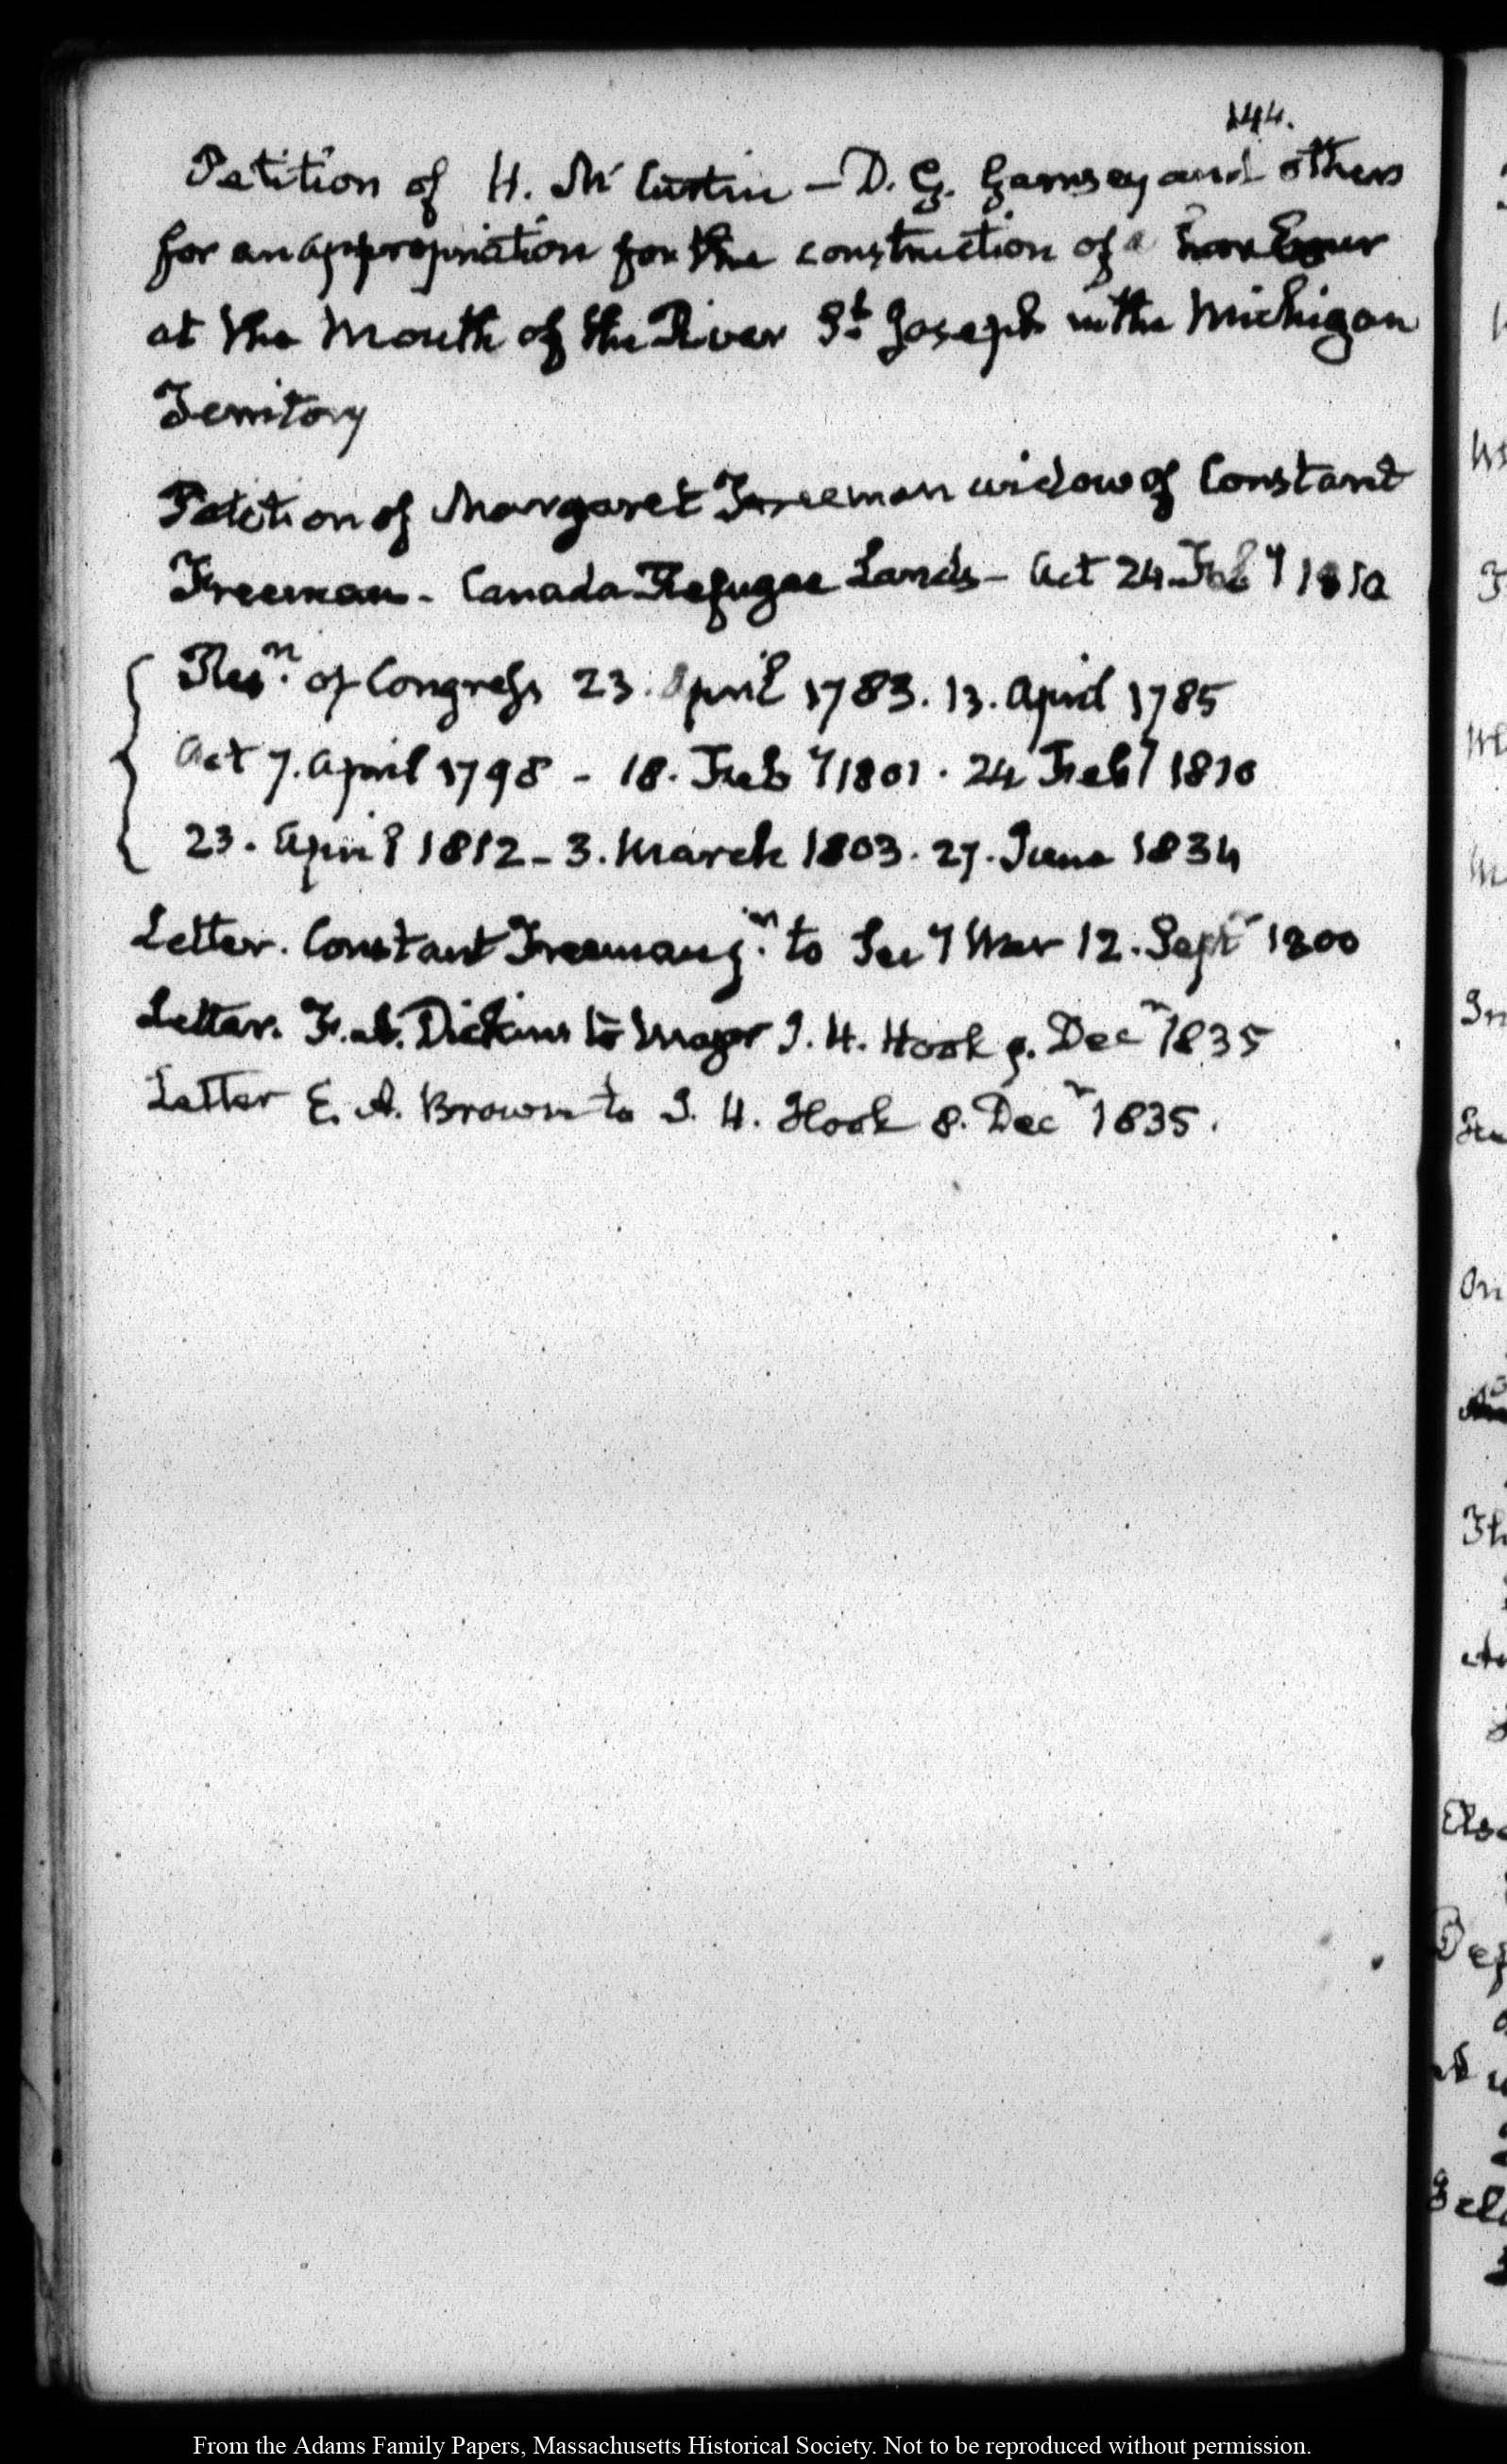 144.
Petition of H. Mc Custin — D. G. Garnsey and others
for an appropriation for the construction of a
at the Mouth of the River St. Joseph in the Michigan
Territory
Petition of Margaret Freeman widow of Constant
Freeman - Canada Refugee Lands - Act 24 Feby 1810
Resn. of Congress 23. April 1783. 13. April 1785
Act 7. April 1798 - 18. Feby 1801. 24 Feby 1810
23. April 1812 - 3. March 1803. 27. June 1834
Letter. Constant Freeman jn. to Secy War 12. Septr 1800
Letter. F. A. Dickins to Major J. H. Hook 9. Decr 1835
Letter E. A. Brown to J. H. Hook 8. Decr 1835.
From the Adams Family Papers, Massachusetts Historical Society. Not to be reproduced without permission.